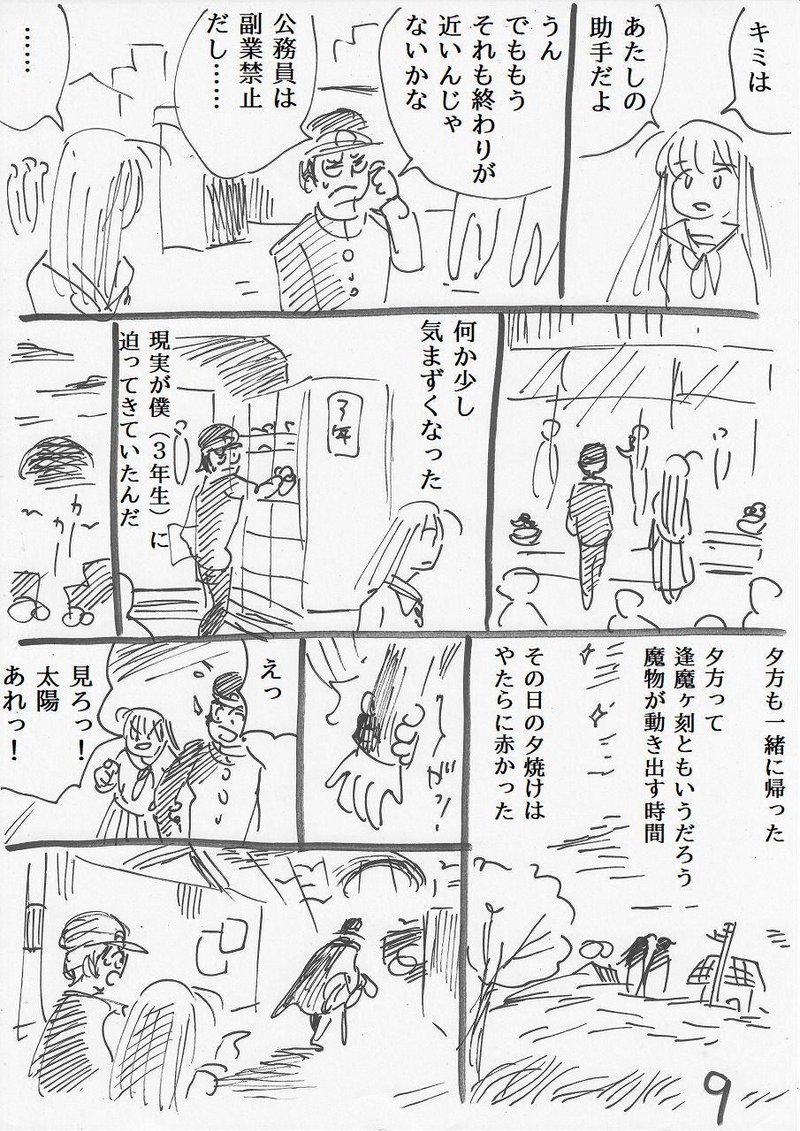 キミは
あたしの
助手だよ
うん
でももう
それも終わりが
近いんじゃ
ないかな
公務員は
副業禁止
だし……
……
何か少し
気まずくなった
3年
現実が僕（３年生）に
迫ってきていたんだ
カー
夕方も一緒に帰った
夕方って
逢魔ヶ刻ともいうだろう
魔物が動き出す時間
その日の夕焼けは
やたらに赤かった
がっ!
えっ
見ろっ！
太陽
あれっ！
9